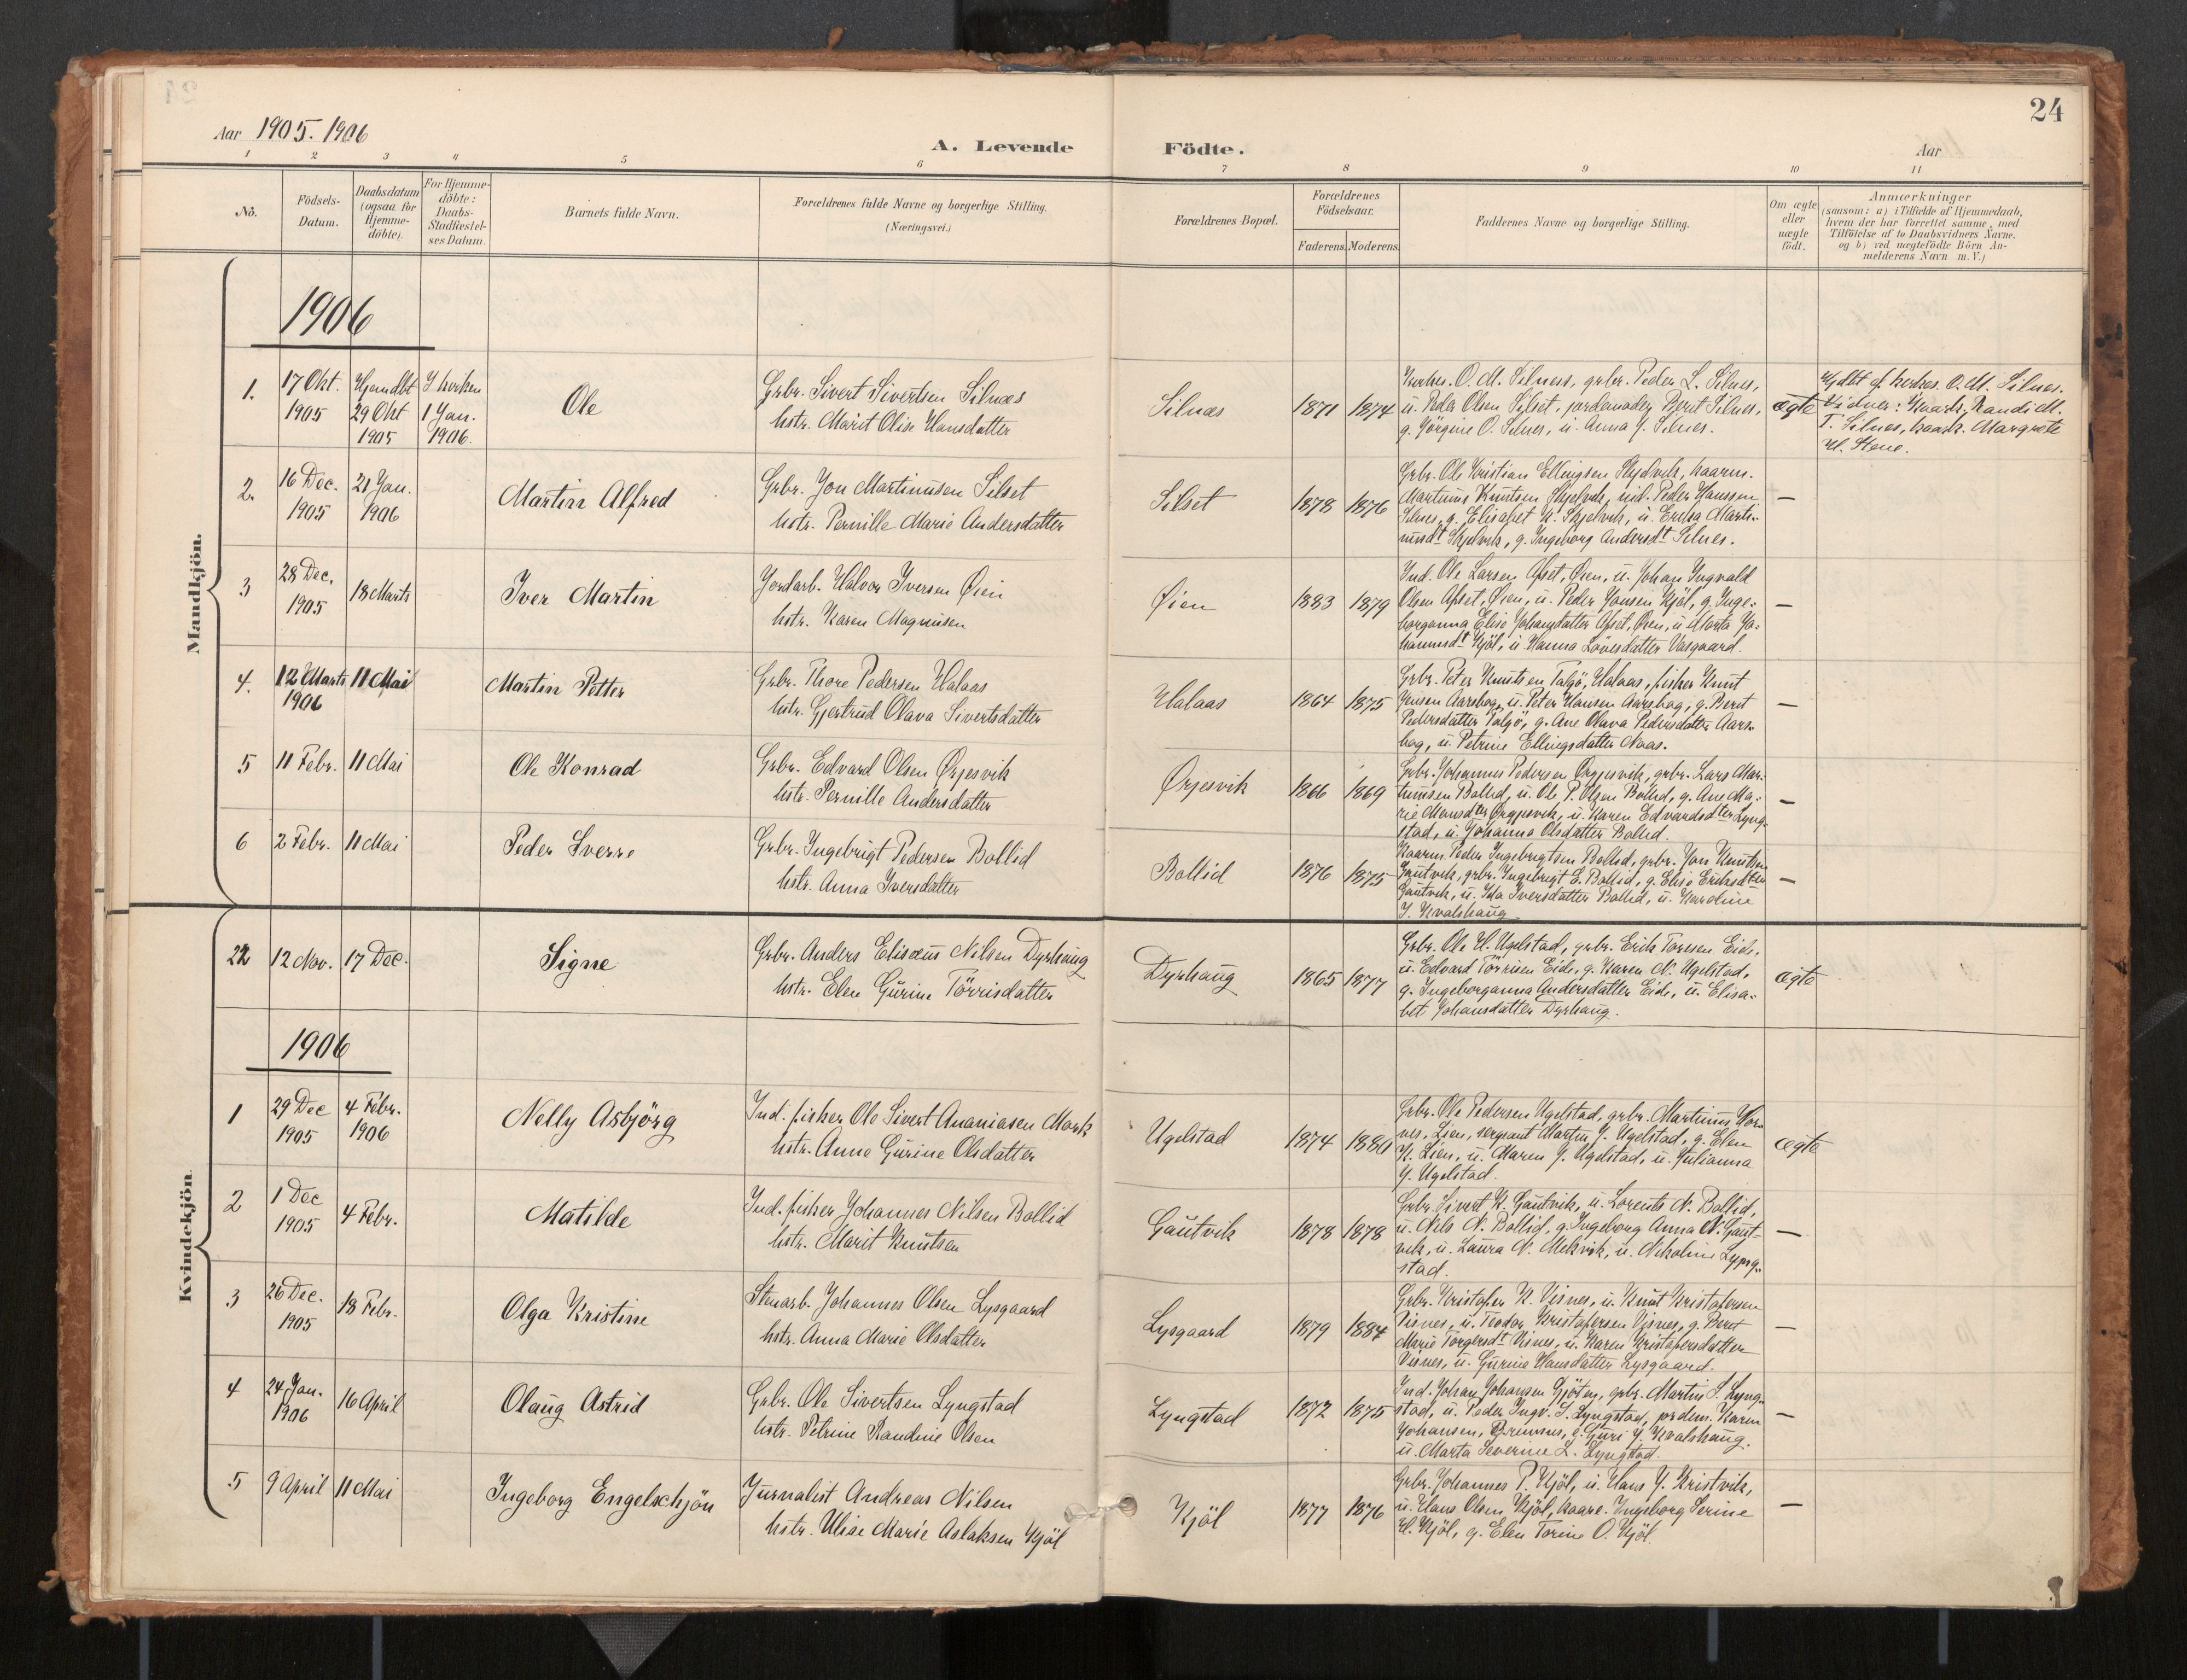 24
Aar 1905. 1906
A. Levende Födte.
Aar
1 2 3 4 5 6 7 8 9 10 11
No.
Födsels-Datum.
Daabsdatum (ogsaa for Hjemme-döbte).
For Hjemme-döbte: Daabs-Stadfæstel-ses Datum.
Barnets fulde Navn.
Forældrenes fulde Navne og borgerlige Stilling. (Næringsvei.)
Forældrenes Bopæl.
Forældrenes Födselsaar.
Faderens. Moderens.
Faddernes Navne og borgerlige Stilling.
Om ægte eller uægte födt.
Anmærkninger
(saasom: a) i Tilfælde af Hjemmedaab,
hvem der har forrettet samme, med
Tilföielse af to Daabsvidners Navne.
og b) ved uægtefödte Börn An-
melderens Navn m.V.)
Mandkjön.
1906
1.
17 Okt. 1905
Hjemdbt 29 Okt 1905
I kirken 1 Jan. 1906.
Ole
Grbr. Sivert Sivertsen Silnæs
hstr. Marit Olise Hansdatter
Silnæs
1871 1874
Kirkes. O. M. Silness, grbr. Peder L. Silnes,
u. Peder Olsen Silset, jordemoder Berit Silnes,
g. Jörgine O. Silnes, u. Anna J. Silnes.
ægte
Hjdbt af kirkes. O. M. Silnes.
Vidner: Kaark. Randi M.
T. Silnes, kaark. Margrete
H. Stene.
2.
16 Dec. 1905
21 Jan. 1906
Martin Alfred
Grbr. Jon Martinusen Silset
hstr. Pernille Marie Andersdatter
Silset
1878 1876
Grbr. Ole Kristian Ellingsen Skjelvik, kaarm.
Martinus Knutsen Skjelvik, ind. Peder Hanssen
Silnes, g. Elisabet K. Skjelvik, u. Ericka Marti-
nusdt Skjelvik, g. Ingeborg Andersdt Silnes.
—
3
28 Dec. 1905
18 Marts
Iver Martin
Jordarb. Halvor Iversen Øien
hstr. Karen Magnusen
Øien
1883 1879
Ind. Ole Larsen Øfset, Øien, u. Johan Ingvald
Olsen Øfset, Øien, u. Peder Jansen Kjöl, g. Inge-
borganna Elise Johansdatter Øfset, Øien, u. Marta Jo-
hannesdt Kjöl, u. Hanna Lövesdatter Vasgaard.
—
4.
12 Marts 1906
11 Mai
Martin Petter
Grbr. Thore Pedersen Halaas
hstr. Gjertrud Olava Sivertsdatter
Halaas
1864 1875
Grbr. Peter Knutsen Talgö, Halaas, fisker Knut
Jensen Aarsbog, u. Peter Hansen Aarsbog, g. Berit
Pedersdatter Talgö, g. Ane Olava Pedersdatter Aars-
bog, u. Petrine Ellingsdatter Naas.
—
5
11 Febr.
11 Mai
Ole Konrad
Grbr. Edvard Olsen Ørjesvik
hstr. Pernille Andersdatter
Ørjesvik
1866 1869
Grbr. Johannes Pedersen Ørgjesvik, grbr. Lars Mar-
tinusen Bollid, u. Ole P. Olsen Bollid, g. Ane Ma-
rie Monsdter Ørgjesvik, u. Karen Edvardsdter Lyng-
stad, u. Johanna Olsdatter Bollid.
—
6
2 Febr.
11 Mai
Peder Sverre
Grbr. Ingebrigt Pedersen Bollid
hstr. Anna Iversdatter
Bollid
1876 1875
Kaarm. Peder Ingebrigtsen Bollid, grbr. Jon Knutsen
Gautvik, grbr. Ingebrigt E. Bollid, g. Elise Eriksdter
Gautvik, u. Ida Iversdatter Bollid, u. Karoline
J. Kvalshaug
—
Kvindekjön
22
12 Nov.
17 Dec.
Signe
Grbr. Anders Elisæus Nilsen Dyrhaug
hstr. Elen Gurine Törrisdatter
Dyrhaug
1865 1877
Grbr. Ole H. Ugelstad, grbr. Erik Torresen Eide,
u. Edvard Törrisen Eide, g. Karen N. Ugelstad,
g. Ingeborganna Andersdatter Eide, u. Elisa-
bet Johansdatter Dyrhaug.
ægte
1906
1
29 Dec 1905
4 Febr. 1906
Nelly Asbjörg
Ind. fisker Ole Sivert Ananiasen Mork
hstr. Anne Gurine Olsdatter
Ugelstad
1874 1880
Grbr. Ole Pedersen Ugelstad, grbr. Martinus Hor-
nes, Lien, sergeant Martin J. Ugelstad, g. Elen
K. Lien, u. Maren J. Ugelstad, u. Julianna
J. Ugelstad.
ægte
2
1 Dec 1905
4 Febr.
Matilde
Ind. fisker Johannes Nilsen Bollid
hstr. Marit Knutsen
Gautvik
1878 1878
Grbr. Sivert K. Gautvik, u. Lorents N. Bollid,
u. Nils N. Bollid, g. Ingeborg Anna N. Gaut-
vik, u. Laura N. Mekvik, u. Nikoline Lyng-
stad.
—
3
26 Dec. 1905
18 Febr.
Olga Kristine
Stenarb. Johannes Olsen Lysgaard
hstr. Anna Marie Olsdatter
Lysgaard
1879 1884
Grbr. Kristofer K. Visnes, u. Knut Kristofersen
Visnes, u. Teodor Kristofersen Visnes, g. Berit
Marie Torgersdt Visnes, u. Karen Kristofersdatter
Visnes, u. Gurine Hansdatter Lysgaard.
—
4
24 Jan. 1906
16 April
Olaug Astrid
Grbr. Ole Sivertsen Lyngstad
hstr. Petrine Randine Olsen
Lyngstad
1872 1875
Ind. Johan Johansen Gjöten, grbr. Martin S. Lyng-
stad, u. Peder Ingv. S. Lyngstad, jordem. Karen
Johansen, Bremsnes, g. Guri J. Kvalshaug.
u. Marta Severine L. Lyngstad.
—
5
9 April
11 Mai
Ingeborg Engelschjön
Jurnalist Andreas Nilsen
hstr. Ulise Marie Aslaksen Kjöl
Kjöl
1877 1876
Grbr. Johannes P. Kjöl, u. Hans J. Kristvik,
u. Hans Olsen Kjöl, kaare. Ingeborg Serine
H. Kjöl, g. Elen Torine O. Kjöl.
—